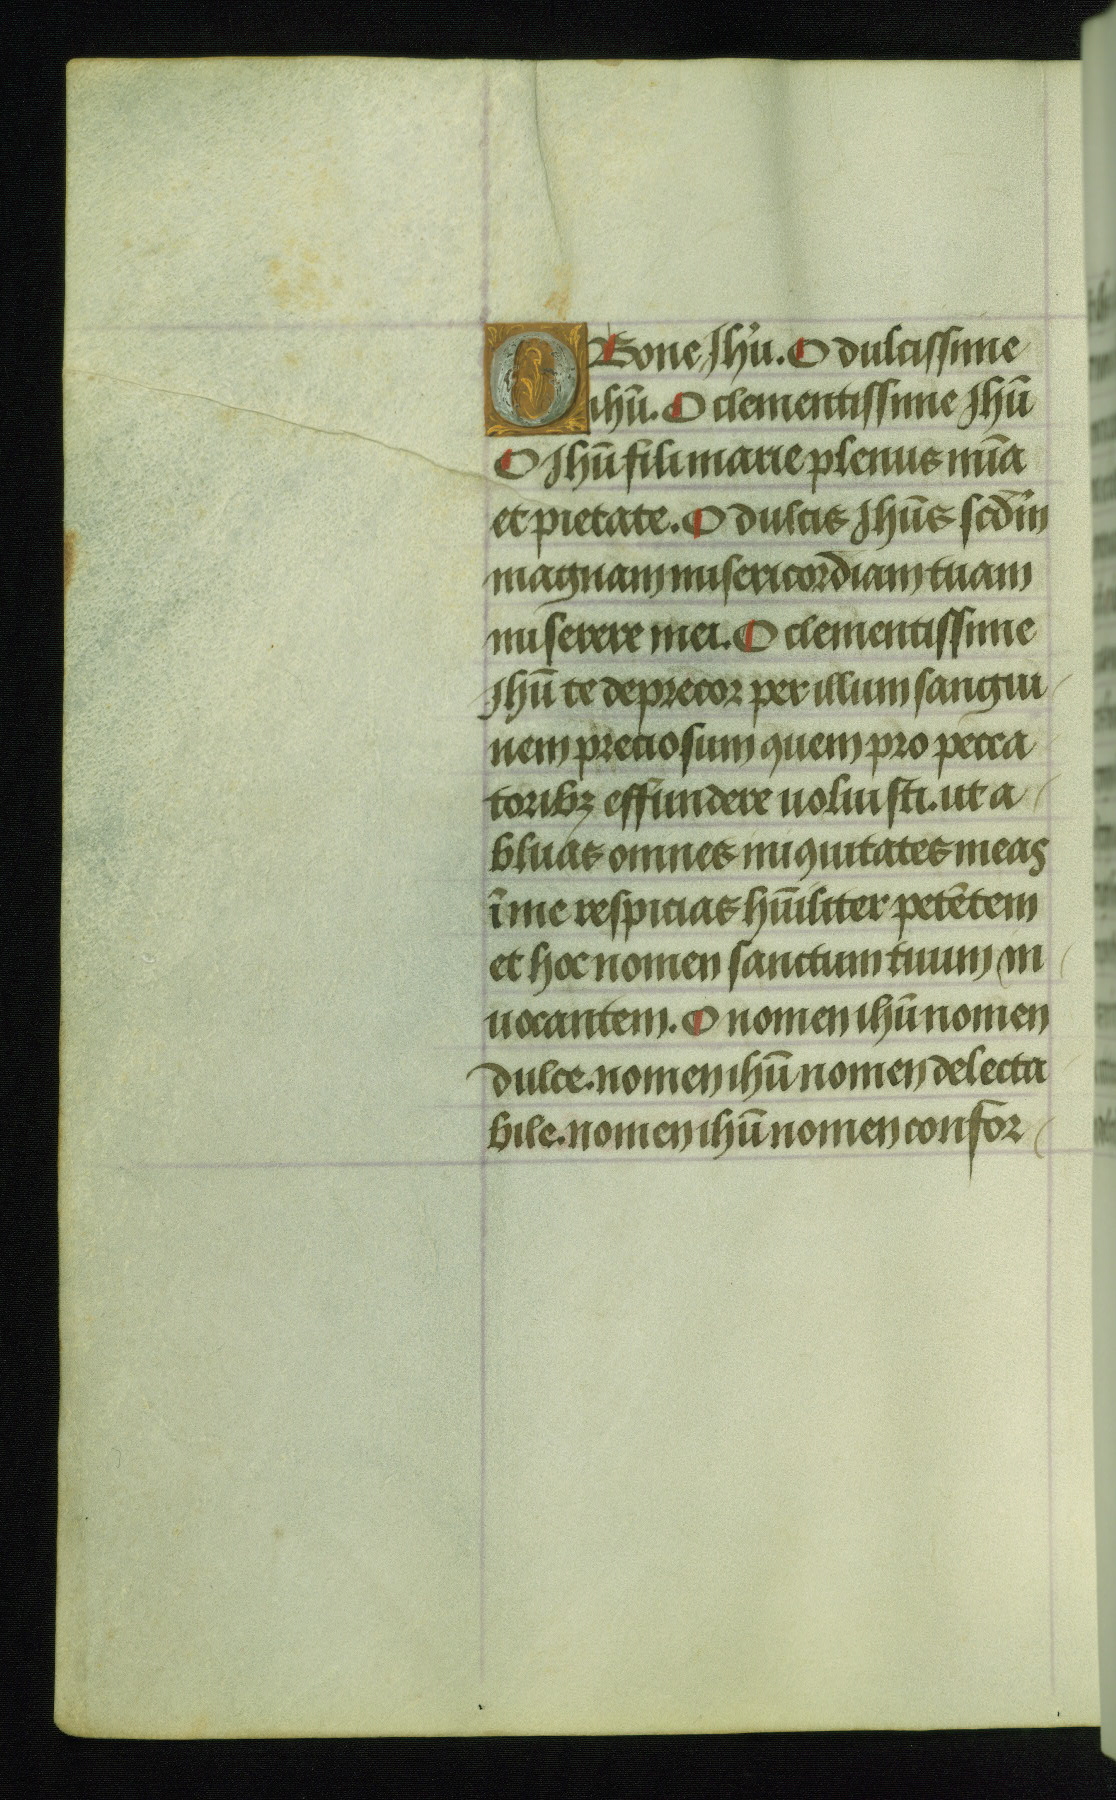 O Bone Jhū. O dulcissime
ihū. O clementissime Jhū
O Jhū fili marie plenus mīa
et pietate. O dulcis Jhūs scd̄m
magnam misericordiam tuam
miserere mei. O clementissime
Jhū te deprecor per illum sangui
nem preciosum quem pro pecca
toribꝫ effundere uoluisti. ut a
bluas omnes iniquitates meas
ī me respicias hūiliter petētem
et hoc nomen sanctum tuum in
uocantem. O nomen ihū nomen
dulce. nomen ihū nomen delecta
bile. nomen ihū nomen confor